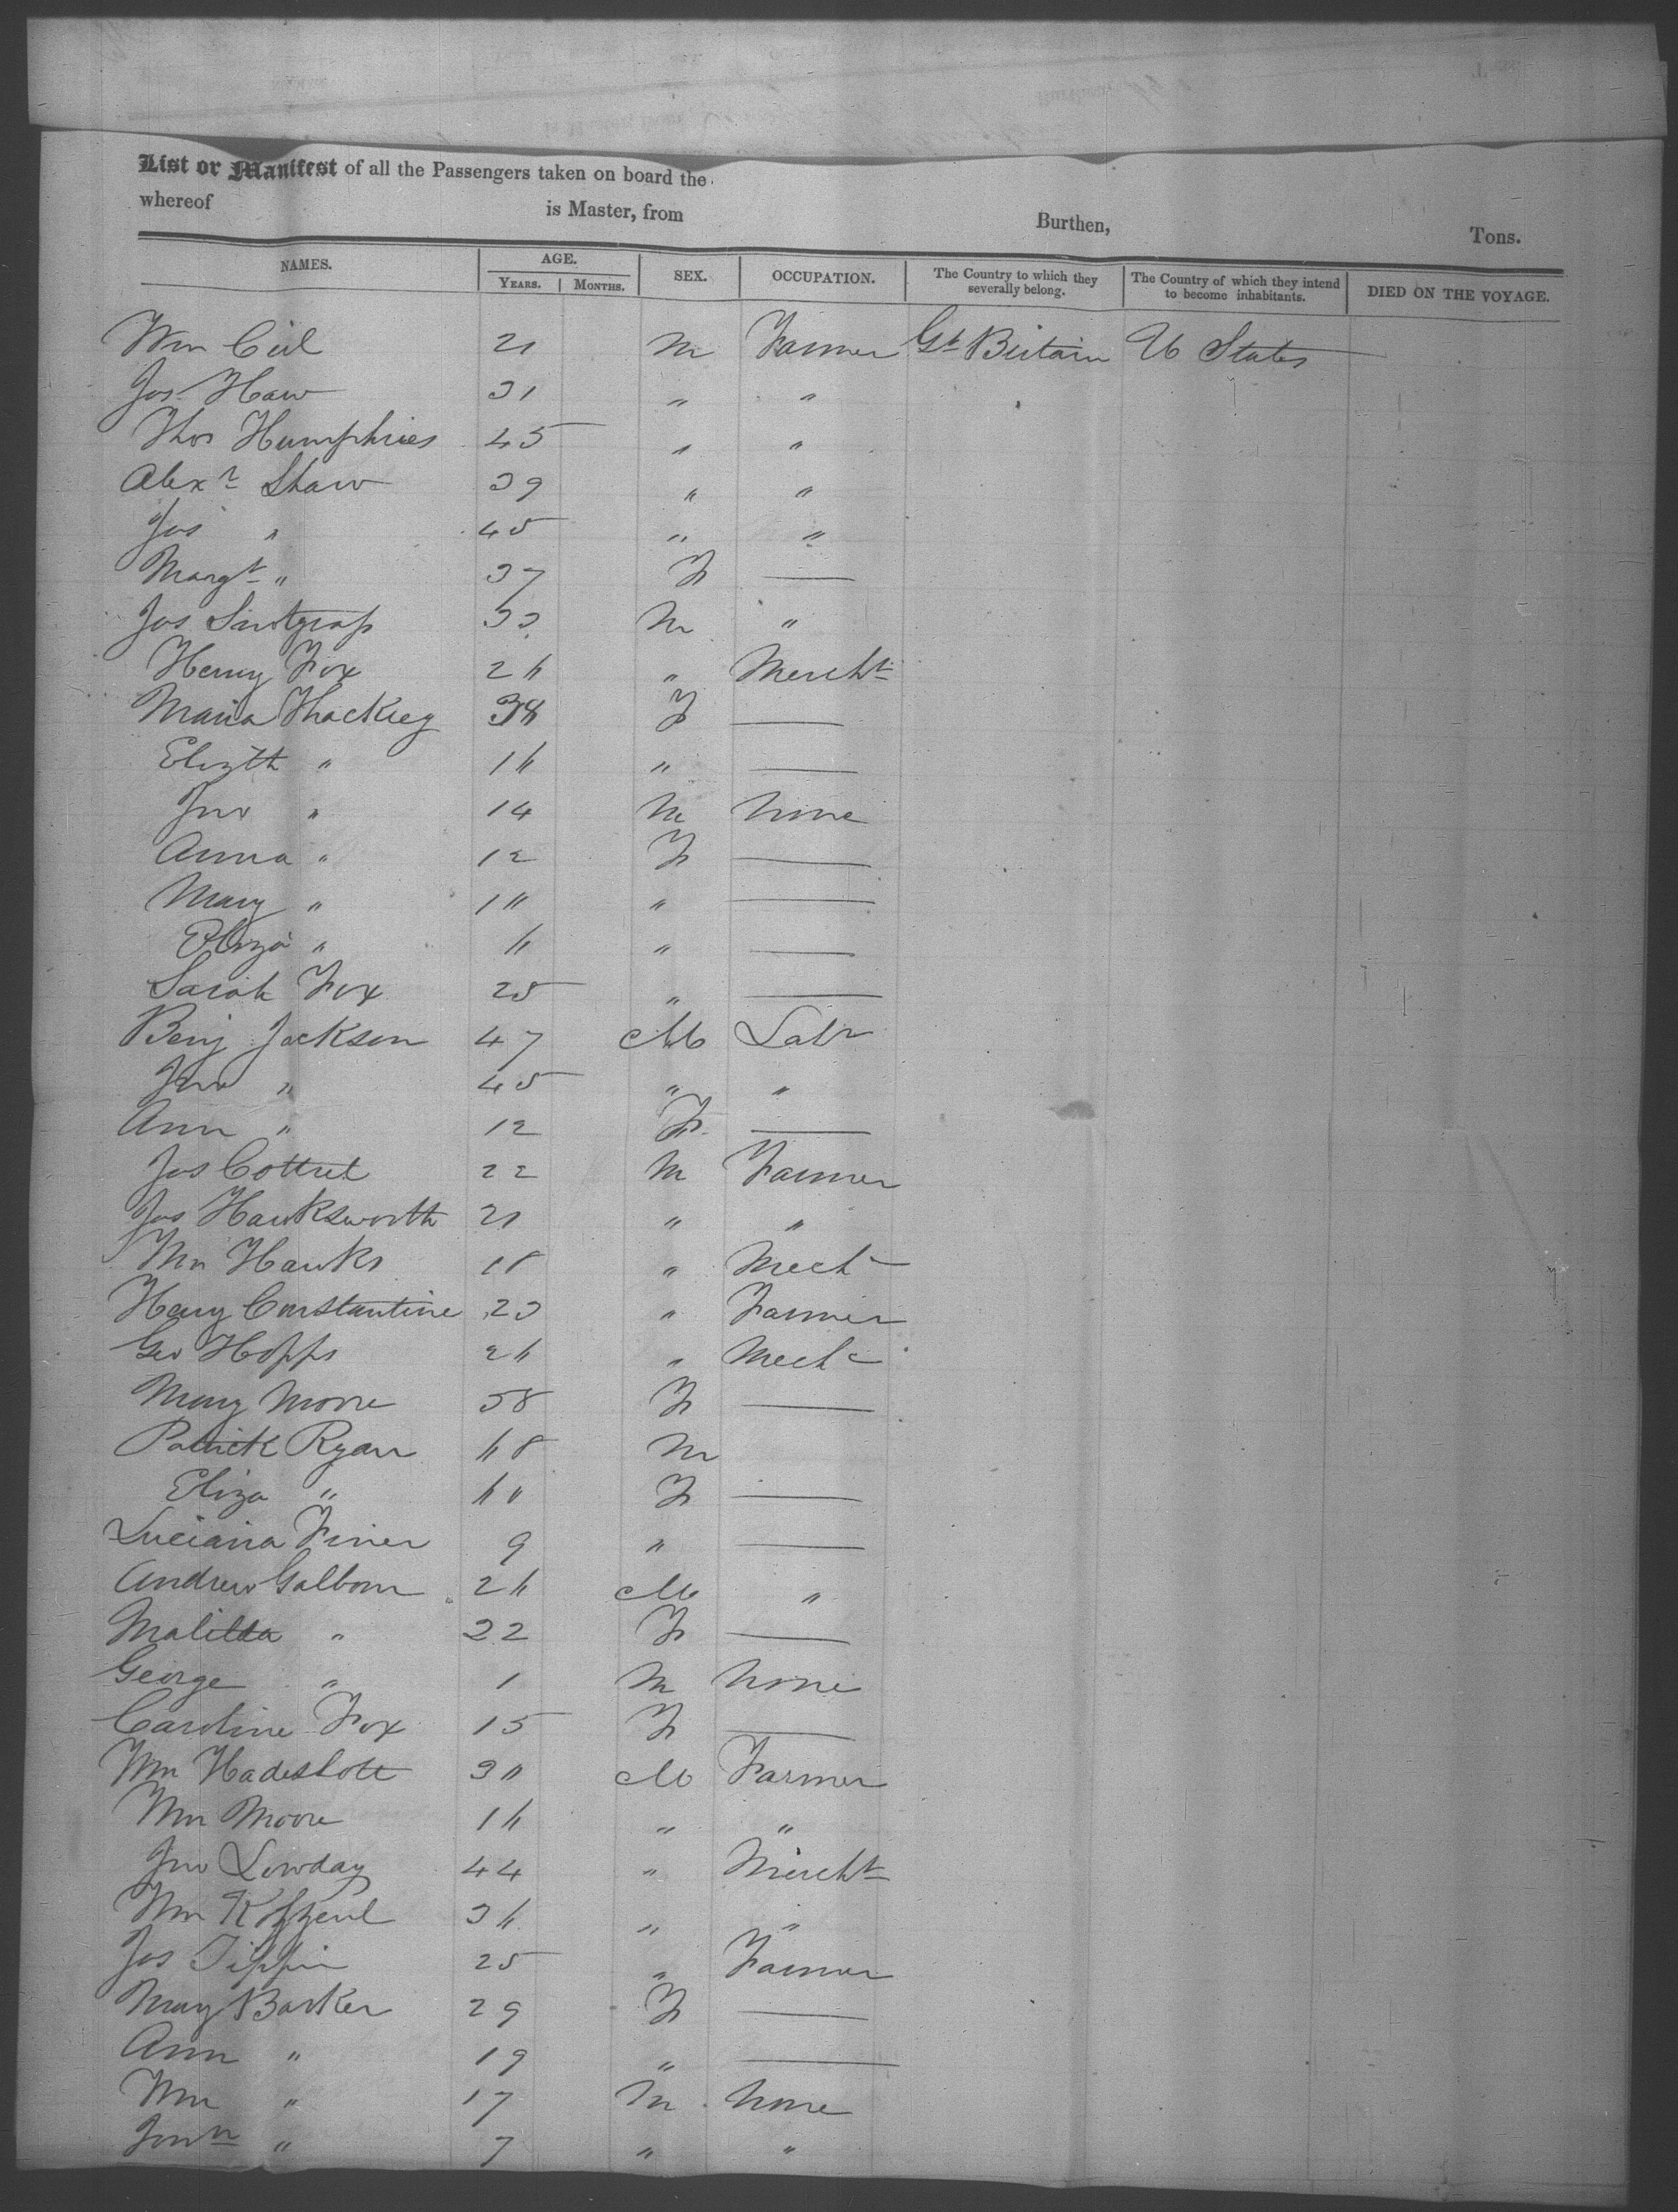 List or Manifest of all the Passengers taken on board the
whereof is Master, from Burthen, Tons.
NAMES. AGE. SEX. OCCUPATION. The Country to which they severally belong. The Country of which they intend to become inhabitants. DIED ON THE VOYAGE.
YEARS. MONTHS.
Wm 21 M Farmer Gt Britain U States
Jos Haw 31 " "
Thos Humphries 45 " "
Alexr Shaw 39 " "
Jas " 45 " "
Margt " 37 F —
Jos 33 M "
Henry Fox 26 " Mercht
Maria Thackrey 38 F —
Elizth " 16 " —
Jno " 14 M None
Anna " 12 F —
Mary " 10 " —
Eliza " 6 " —
Sarah Fox 25 " —
Benj Jackson 47 M Labr
Jno " 45 " "
Ann " 12 F —
Jos Cottrel 22 M Farmer
Jos Hawksworth 21 " "
Wm Hawks 18 " Mech
Henry Constantine 23 " Farmer
Geo Hopps 26 " Mech
Mary Moore 58 F —
Patrick Ryan 68 M
Eliza " 60 F —
Luciana 9 " —
Andrew 26 M "
Malilda " 22 F —
George " 1 M None
Caroline Fox 15 F —
Wm 30 M Farmer
Wm Moore 16 " "
Jno Lowday 44 " Mercht
Wm 36 " "
Jos Tippin 25 " Farmer
Mary Barker 29 F —
Ann " 19 " —
Wm " 17 M None
" 7 " "